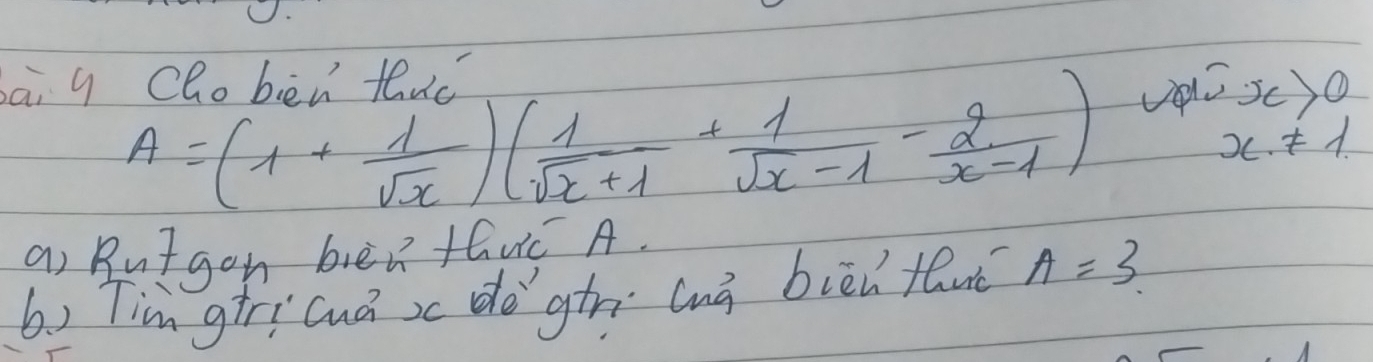 bài 4 Cho biểu thức
A = (1 + 1/√x)(1/(√x + 1) + 1/(√x - 1) - 2/(x - 1)) với x > 0
x ≠ 1.
a) Rút gọn biểu thức A.
b.) Tìm gtrị của x để gtrị của biểu thức A = 3.